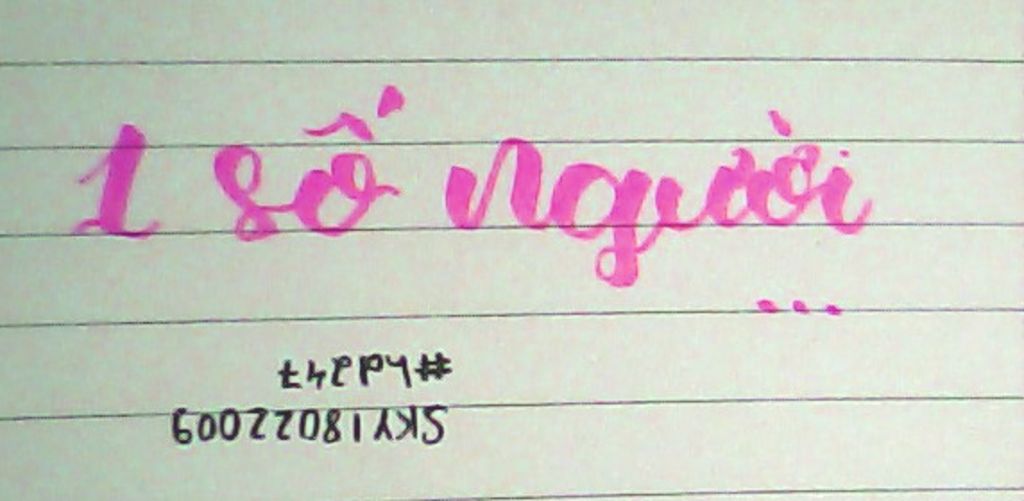 1 số người
...
SKY18022009
#hd247